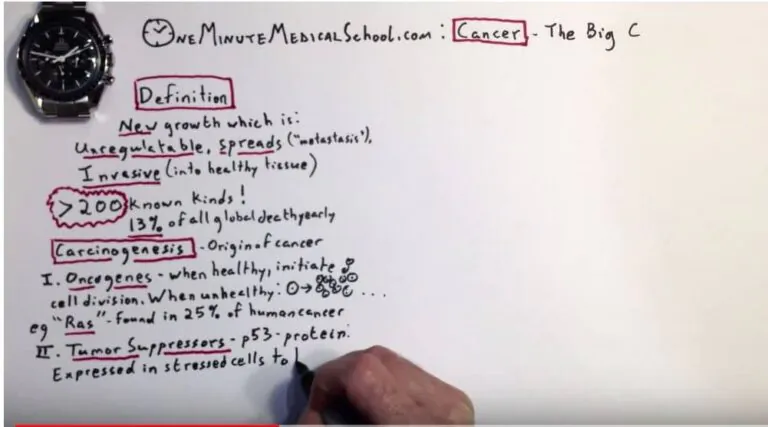 OneMinuteMedicalSchool.com: Cancer - The Big C
Definition
New growth which is:
Unregulatable, spreads ("metastasis"),
Invasive (into healthy tissue)
>200 known kinds!
13% of all global death yearly
Carcinogenesis - Origin of cancer
I. Oncogenes - when healthy, initiate
cell division. When unhealthy: → ...
eg "Ras" - found in 25% of human cancer
II. Tumor Suppressors - p53 - protein:
Expressed in stressed cells to